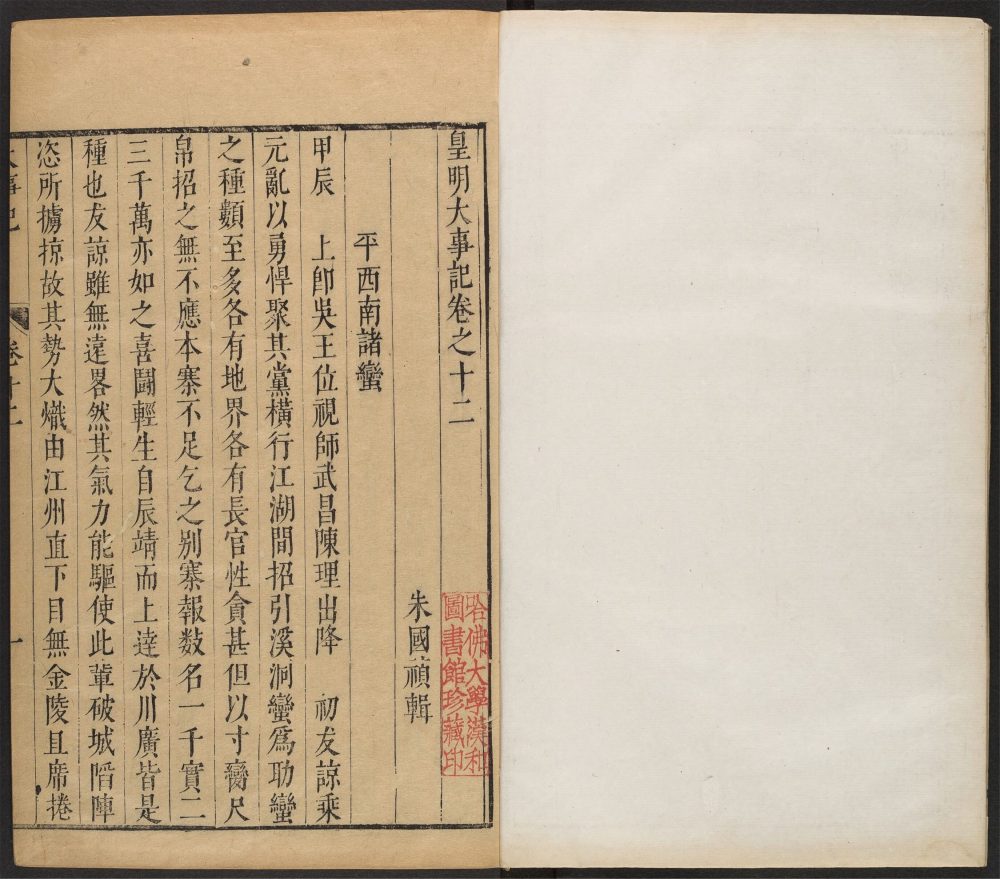 皇明大事記卷之十二
朱國禎輯
平西南諸蠻
甲辰　上卽吳王位視師武昌陳理出降　初友諒乘
元亂以勇悍聚其黨橫行江湖間招引溪洞蠻爲助蠻
之種類至多各有地界各有長官性貪甚但以寸臠尺
帛招之無不應本寨不足乞之別寨報数名一千實二
三千萬亦如之喜鬭輕生自辰靖而上達於川廣皆是
種也友諒雖無遠畧然其氣力能驅使此輩破城䧟陣
恣所擄掠故其勢大熾由江州直下目無金陵且席捲
大事記　卷十二　一
哈佛大學漢和
圖書館珍藏印